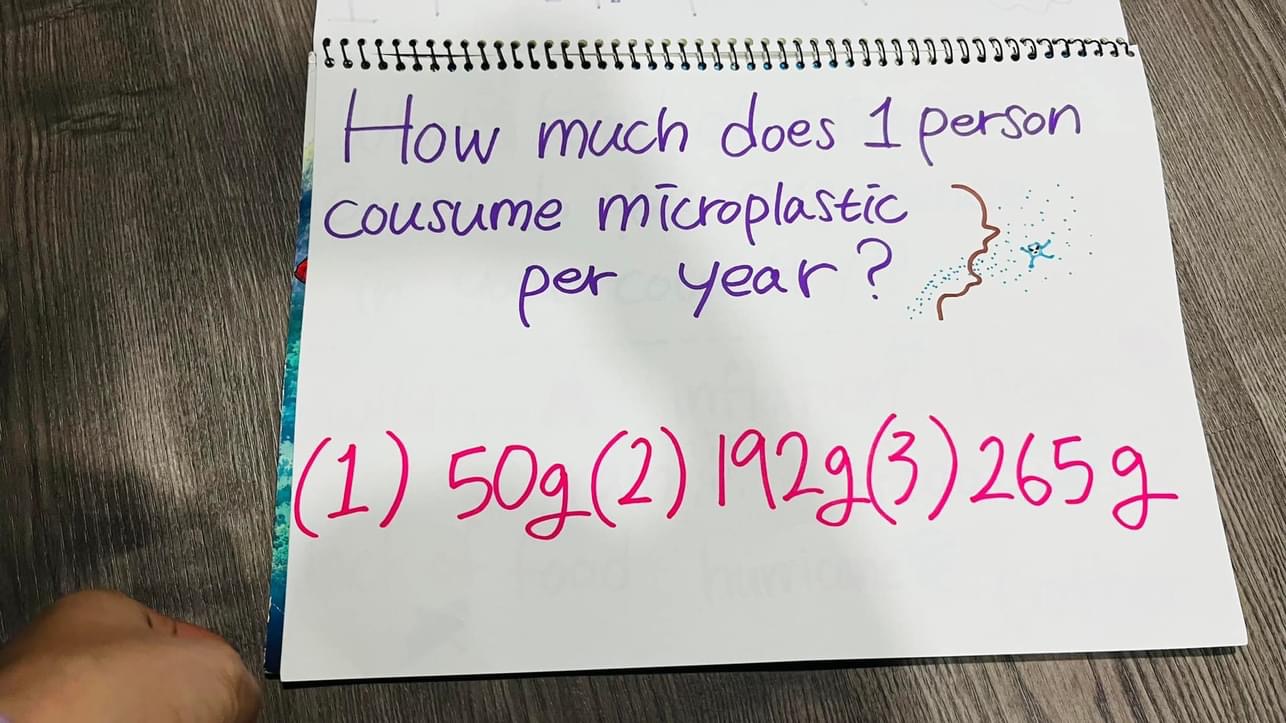 How much does 1 person
cousume microplastic
per year?
(1) 50g (2) 192g (3) 265g